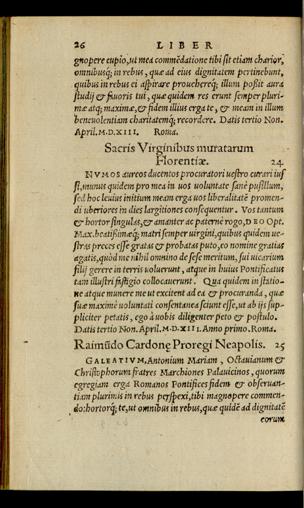 26 LIBER
gnopere cupio, ut mea commēdatione tibi sit etiam charior,
omnibusq; in rebus, quæ ad eius dignitatem pertinebunt,
quibus in rebus ei aspirare prouehereq; illum possit aura
studij & fauoris tui, quæ quidem res erunt semper pluri-
mæ atq; maximæ, & fidem illius erga te, & meam in illum
beneuolentiam charitatemq; recordere. Datis tertio Non.
April. M.D.XIII. Roma.
Sacris Virginibus muratarum
Florentiæ. 24
NVMOS aureos ducentos procuratori uestro curari ius
si, munus quidem pro mea in uos uoluntate sanè pusillum,
sed hoc leuius initium meam erga uos liberalitatē promen-
di uberiores in dies largitiones consequentur. Vos tantum
& hortor singulas, & amanter ac paternè rogo, DEO Opt.
Max. beatissimæq; matri semper uirgini, quibus quidem ue-
stras preces esse gratas & probatas puto, eo nomine gratias
agatis, quòd me nihil omnino de sese meritum, sui uicarium
filij gerere in terris uoluerunt, atque in huius Pontificatus
tam illustri fastigio collocauerunt. Qua quidem in statio-
ne atque munere me ut excitent ad ea & procuranda, quæ
suæ maximè uoluntati consentanea sciunt esse, ut ab ijs sup-
pliciter petatis, ego à uobis diligenter peto & postulo.
Datis tertio Non. April. M.D.XIII. Anno primo. Roma.
Raimūdo Cardonę Proregi Neapolis. 25
GALEATIVM, Antonium Mariam, Octauianum &
Christophorum fratres Marchiones Palauicinos, quorum
egregiam erga Romanos Pontifices fidem & obseruan-
tiam plurimis in rebus perspexi, tibi magnopere commen-
do: hortorq; te, ut omnibus in rebus, quæ quidē ad dignitatē
eorum